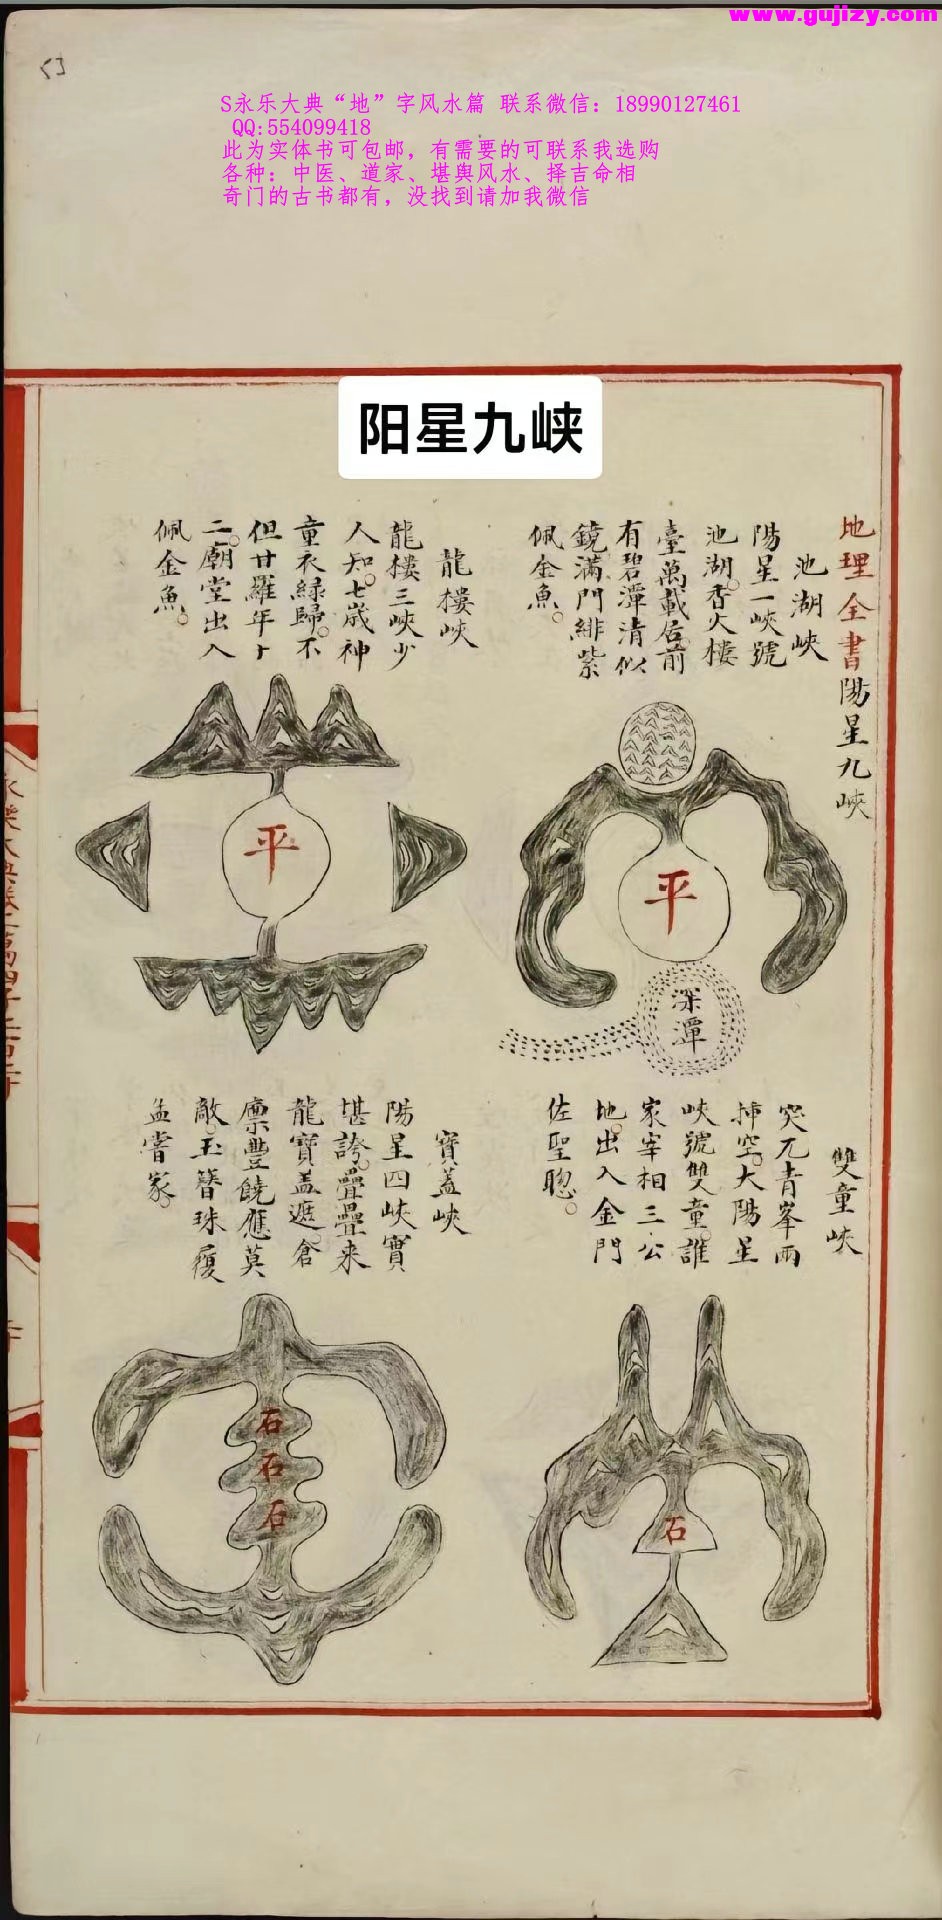 www.gujizy.com
S永乐大典“地”字风水篇 联系微信：18990127461
QQ:554099418
此为实体书可包邮，有需要的可联系我选购
各种：中医、道家、堪舆风水、择吉命相
奇门的古书都有，没找到请加我微信
阳星九峡
地理全書陽星九峽
池湖峽
陽星一峽號
池湖。香火樓
臺萬載居。前
有碧潭清似
鏡。滿門緋紫
佩金魚。
平
深潭
龍樓峽
龍樓三峽少
人知。七歲神
童衣緑歸。不
但甘羅年十
二。廟堂出入
佩金魚。
平
雙童峽
突兀青峯兩
揷空。大陽星
峽號雙童。誰
家宰相三公
地。出入金門
佐聖聦。
石
寳蓋峽
陽星四峽實
堪誇。疊疊来
龍寳盖遮。倉
廪豐饒應莫
敵。玉簪珠履
孟嘗家。
石
石
石